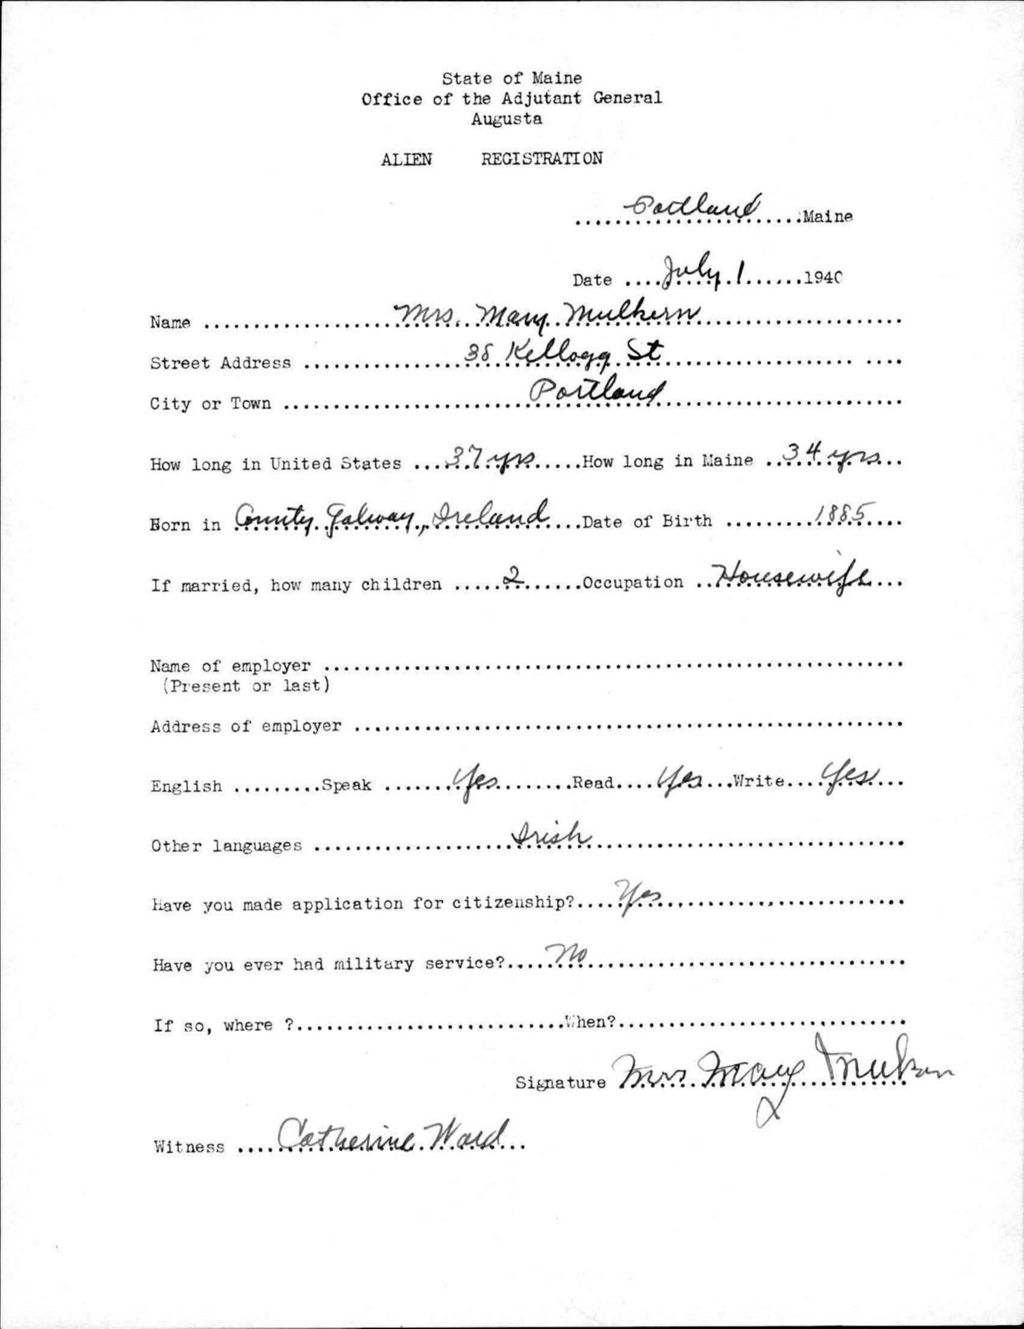 State of Maine
Office of the Adjutant General
Augusta
ALIEN REGISTRATION
Portland Maine
Date July 1 1940
Name Mrs. Mary Mulkern
Street Address 38 Kellogg St
City or Town Portland
How long in United States 37 yrs How long in Maine 34 yrs
Born in County Galway, Ireland Date of Birth 1885
If married, how many children 2 Occupation Housewife
Name of employer
(Present or last)
Address of employer
English Speak Yes Read Yes Write Yes
Other languages Irish
Have you made application for citizenship? Yes
Have you ever had military service? No
If so, where ? When?
Signature Mrs Mary Mulkern
Witness Catherine Ward